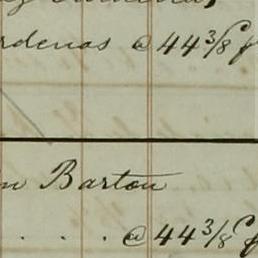 rdenas @ 44 3/8 f
n Barton
. . . . @ 44 3/8 f